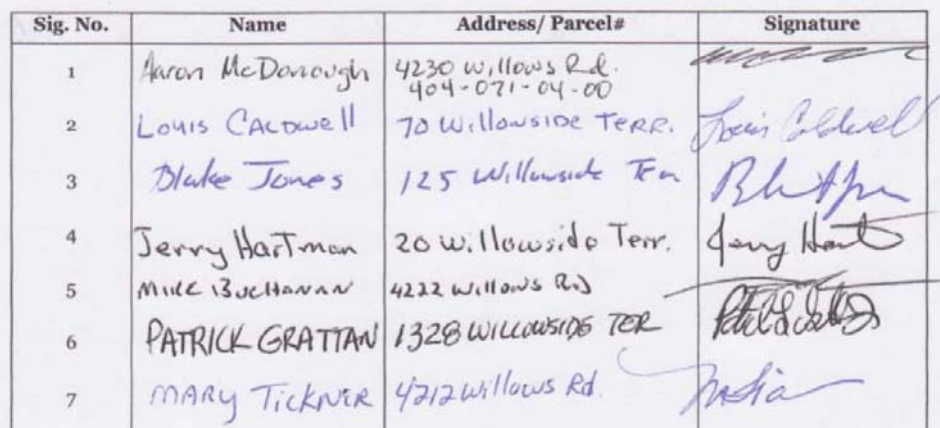 Sig. No. Name Address/ Parcel# Signature
1 Aaron McDonough 4230 Willows Rd.
404-071-04-00
2 Louis Caldwell 70 Willowside Terr. Louis Caldwell
3 Blake Jones 125 Willowside Terr
4 Jerry Hartman 20 Willowside Terr. Jerry Hart
5 Mike Buchanan 4222 Willows Rd
6 PATRICK GRATTAN 1328 WILLOWSIDE TER
7 MARY TICKNER 4212 Willows Rd.